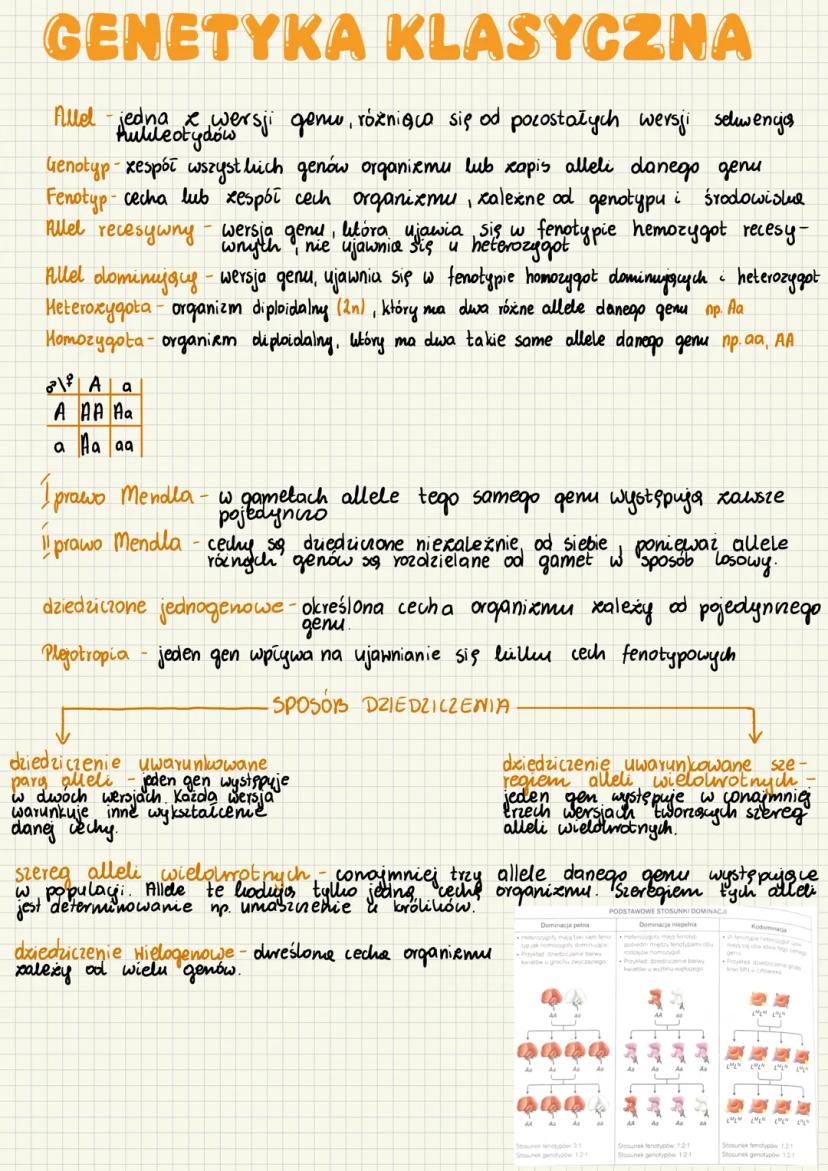 GENETYKA KLASYCZNA
Allel - jedna z wersji genu, różniąca się od pozostałych wersji sekwencją
nukleotydów
Genotyp - zespół wszystkich genów organizmu lub zapis alleli danego genu
Fenotyp - cecha lub zespół cech organizmu, zależne od genotypu i środowiska
Allel recesywny - wersja genu, która ujawia się w fenotypie hemozygot recesy-
wnych, nie ujawnia się u heterozygot
Allel dominujący - wersja genu, ujawnia się w fenotypie homozygot dominujących i heterozygot
Heterozygota - organizm diploidalny (2n), który ma dwa różne allele danego genu np. Aa
Homozygota - organizm diploidalny, który ma dwa takie same allele danego genu np. aa, AA
♂\♀ A a
A AA Aa
a Aa aa
I prawo Mendla - w gametach allele tego samego genu występują zawsze
pojedynczo
II prawo Mendla - cechy są dziedziczone niezależnie od siebie, ponieważ allele
różnych genów są rozdzielane od gamet w sposób losowy.
dziedziczone jednogenowe - określona cecha organizmu zależy od pojedynczego
genu.
Plejotropia - jeden gen wpływa na ujawnianie się kilku cech fenotypowych
SPOSÓB DZIEDZICZENIA
dziedziczenie uwarunkowane
parą alleli - jeden gen występuje
w dwóch wersjach. Każda wersja
warunkuje inne wykształcenie
danej cechy.
dziedziczenie uwarunkowane sze-
regiem alleli wielokrotnych -
jeden gen występuje w conajmniej
trzech wersjach tworzących szereg
alleli wielokrotnych.
szereg alleli wielokrotnych - conajmniej trzy allele danego genu występujące
w populacji. Allele te kodują tylko jedną cechę organizmu. Szeregiem tych alleli
jest determinowanie np. umaszczenie u królików.
dziedziczenie wielogenowe - określona cecha organizmu
zależy od wielu genów.
PODSTAWOWE STOSUNKI DOMINACJI
Dominacja pełna
Dominacja niepełna
Kodominacja
AA aa
AA aa
LᴹLᴹ LᴺLᴺ
Aa Aa Aa Aa
Aa Aa Aa Aa
LᴹLᴺ LᴹLᴺ LᴹLᴺ LᴹLᴺ
AA Aa Aa aa
AA Aa Aa aa
LᴹLᴹ LᴹLᴺ LᴹLᴺ LᴺLᴺ
Stosunek fenotypów: 3:1
Stosunek genotypów: 1:2:1
Stosunek fenotypów: 1:2:1
Stosunek genotypów: 1:2:1
Stosunek fenotypów: 1:2:1
Stosunek genotypów: 1:2:1